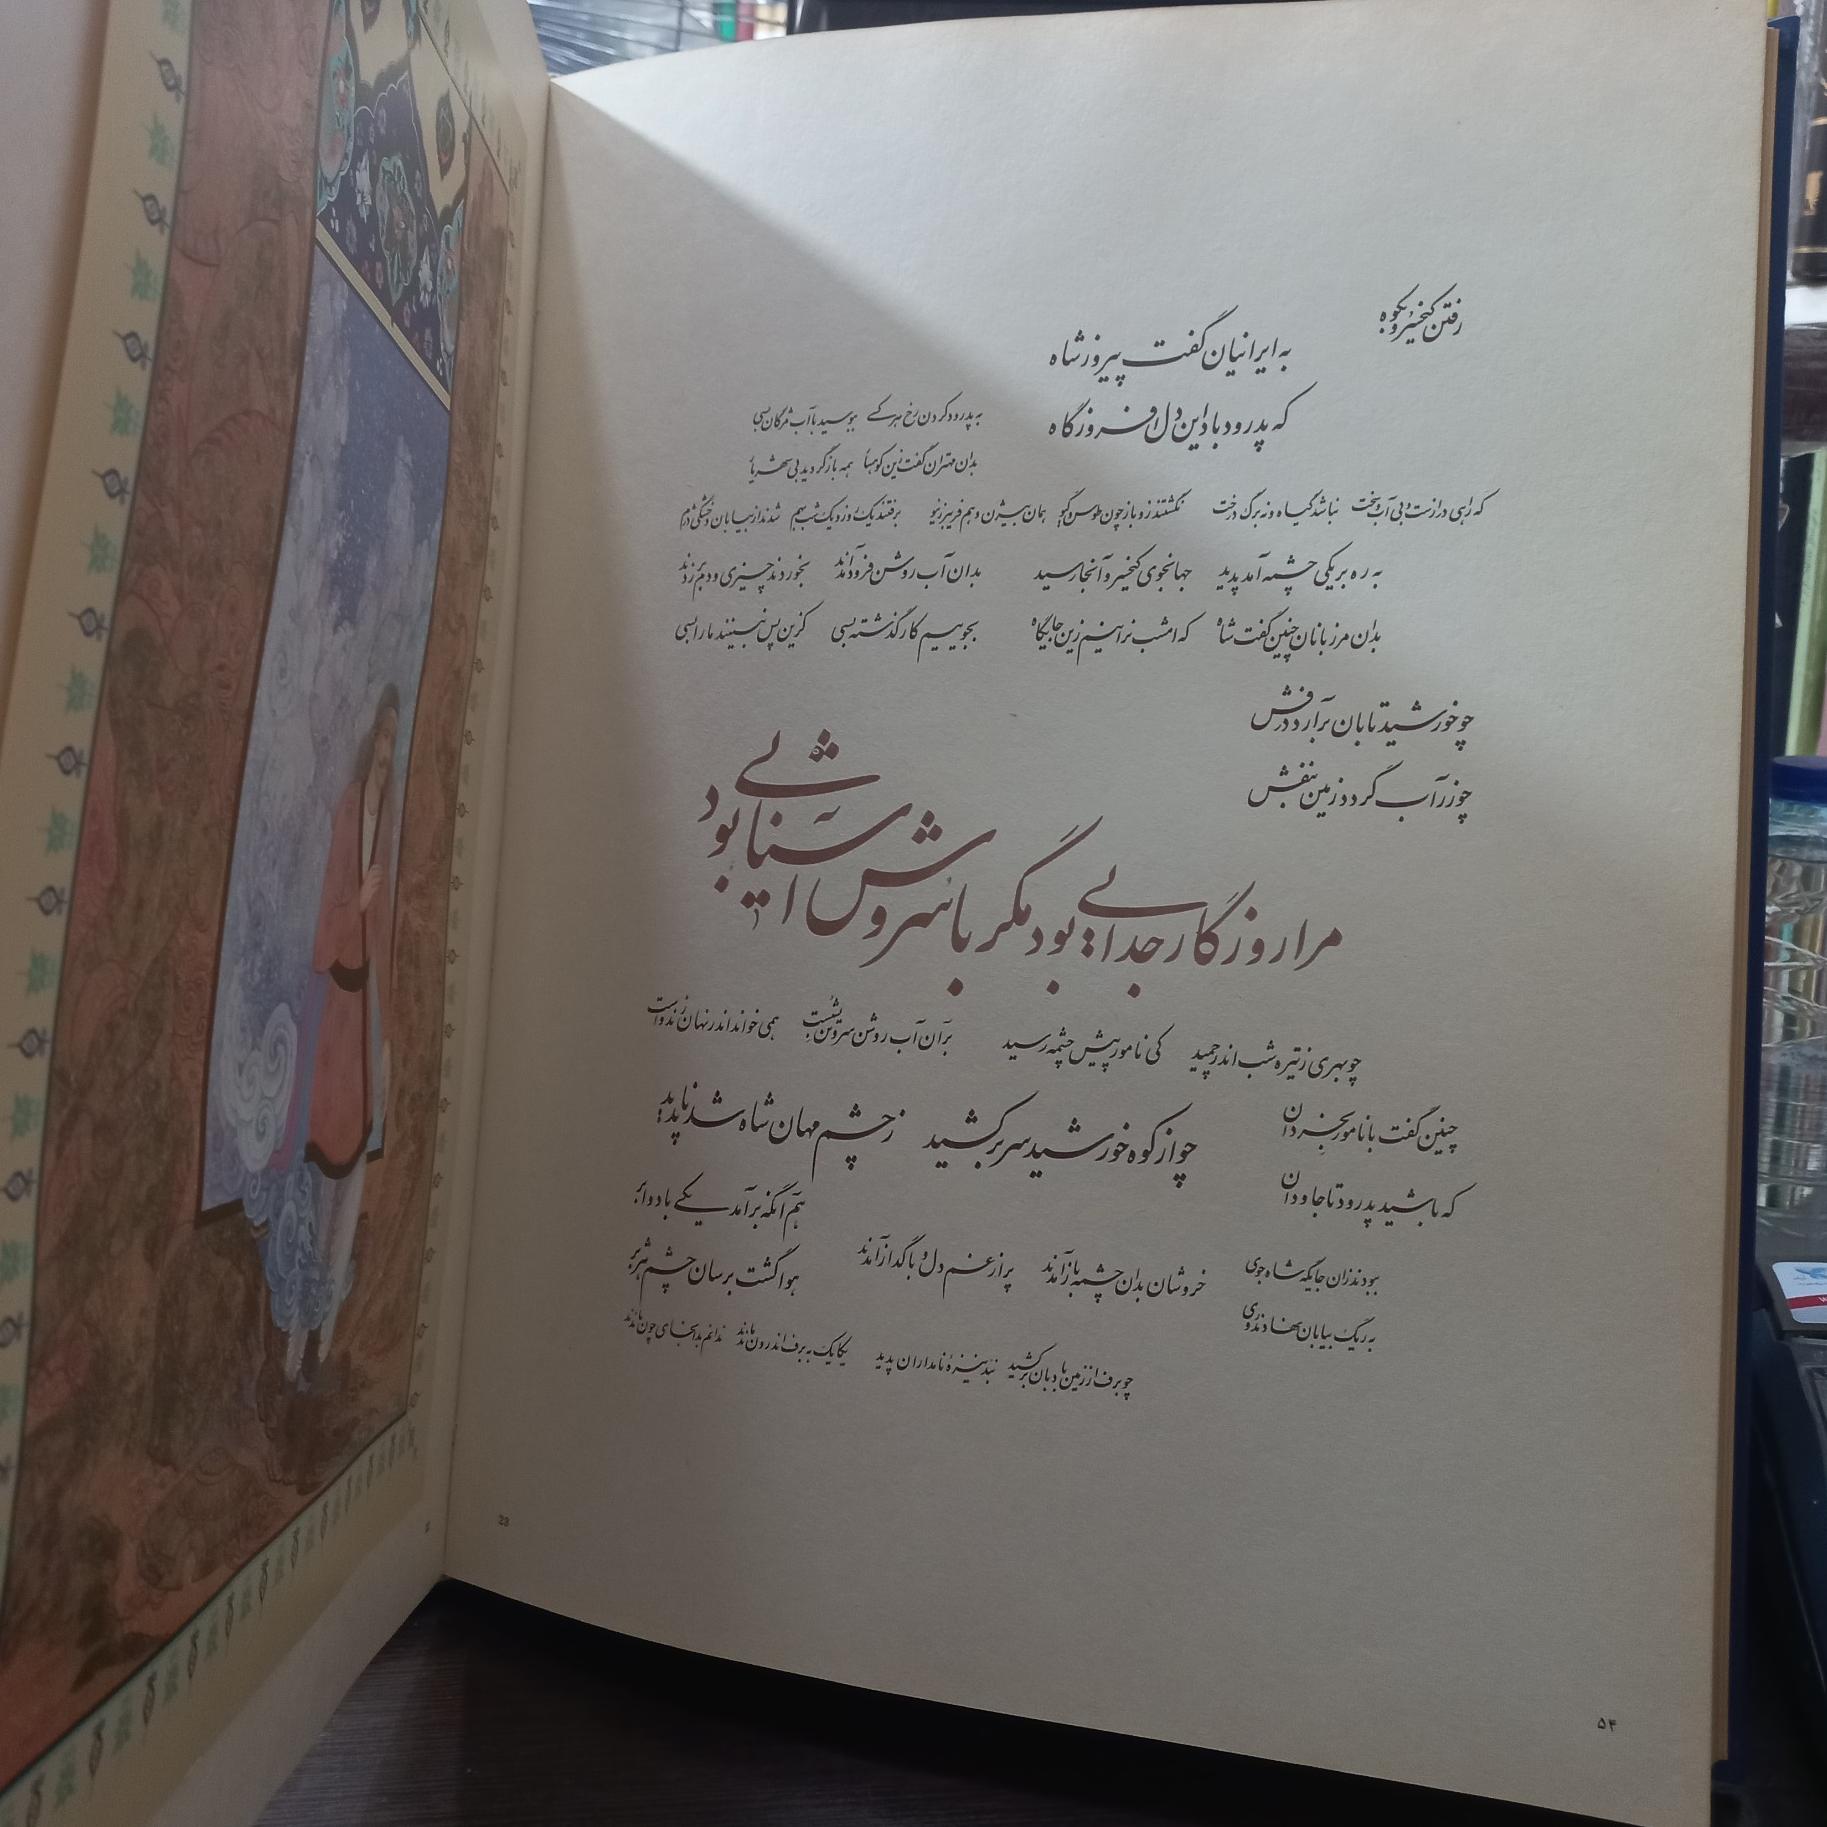 رفتن کیخسرو بکوه
به ایرانیان گفت پیروز شاه
که پدرود باد این دل افروز گاه
به پدرود کردن رخ هر کسی ببوسید با آب مژگان بسی
بدان مهتران گفت زین کوهسار همه باز گردید بی شهریار
که راهی درازست و بی آب و سخت نباشد گیاه و نه برگ درخت نگشتند زو باز چون طوس و گیو همان بیژن و هم فریبرز نیو برفتند یک روز و یک شب بهم شدند از بیابان و خشکی دژم
به ره بر یکی چشمه آمد پدید جهانجوی کیخسرو آنجا رسید بدان آب روشن فرود آمدند بخوردند چیزی و دم بر زدند
بدان مرزبانان چنین گفت شاه که امشب نرانیم زین جایگاه بجوییم کار گذشته بسی کزین پس نبینند ما را بسی
چو خورشید تابان برآرد درفش
چو زر آب گردد زمین بنفش
مرا روزگار جدایی بود مگر با سروش آشنایی بود
چو بهری ز تیره شب اندر چمید کی نامور پیش چشمه رسید بر آن آب روشن سر و تن بشست همی خواند اندر نهان زند و است
چنین گفت با نامور بخردان
که باشید پدرود تا جاودان
چو از کوه خورشید سر برکشید ز چشم مهان شاه شد ناپدید
ببودند زان جایگه شاه جوی
به ریگ بیابان نهادند روی
خروشان بدان چشمه باز آمدند پر از غم دل و با گداز آمدند
هم آنگه برآمد یکی باد و ابر
هوا گشت برسان چشم هژبر
چو برف از زمین بادبان برکشید نبد نیزهٔ نامداران پدید یکایک به برف اندرون ماندند ندانم بدانجای چون ماندند
23
۵۴